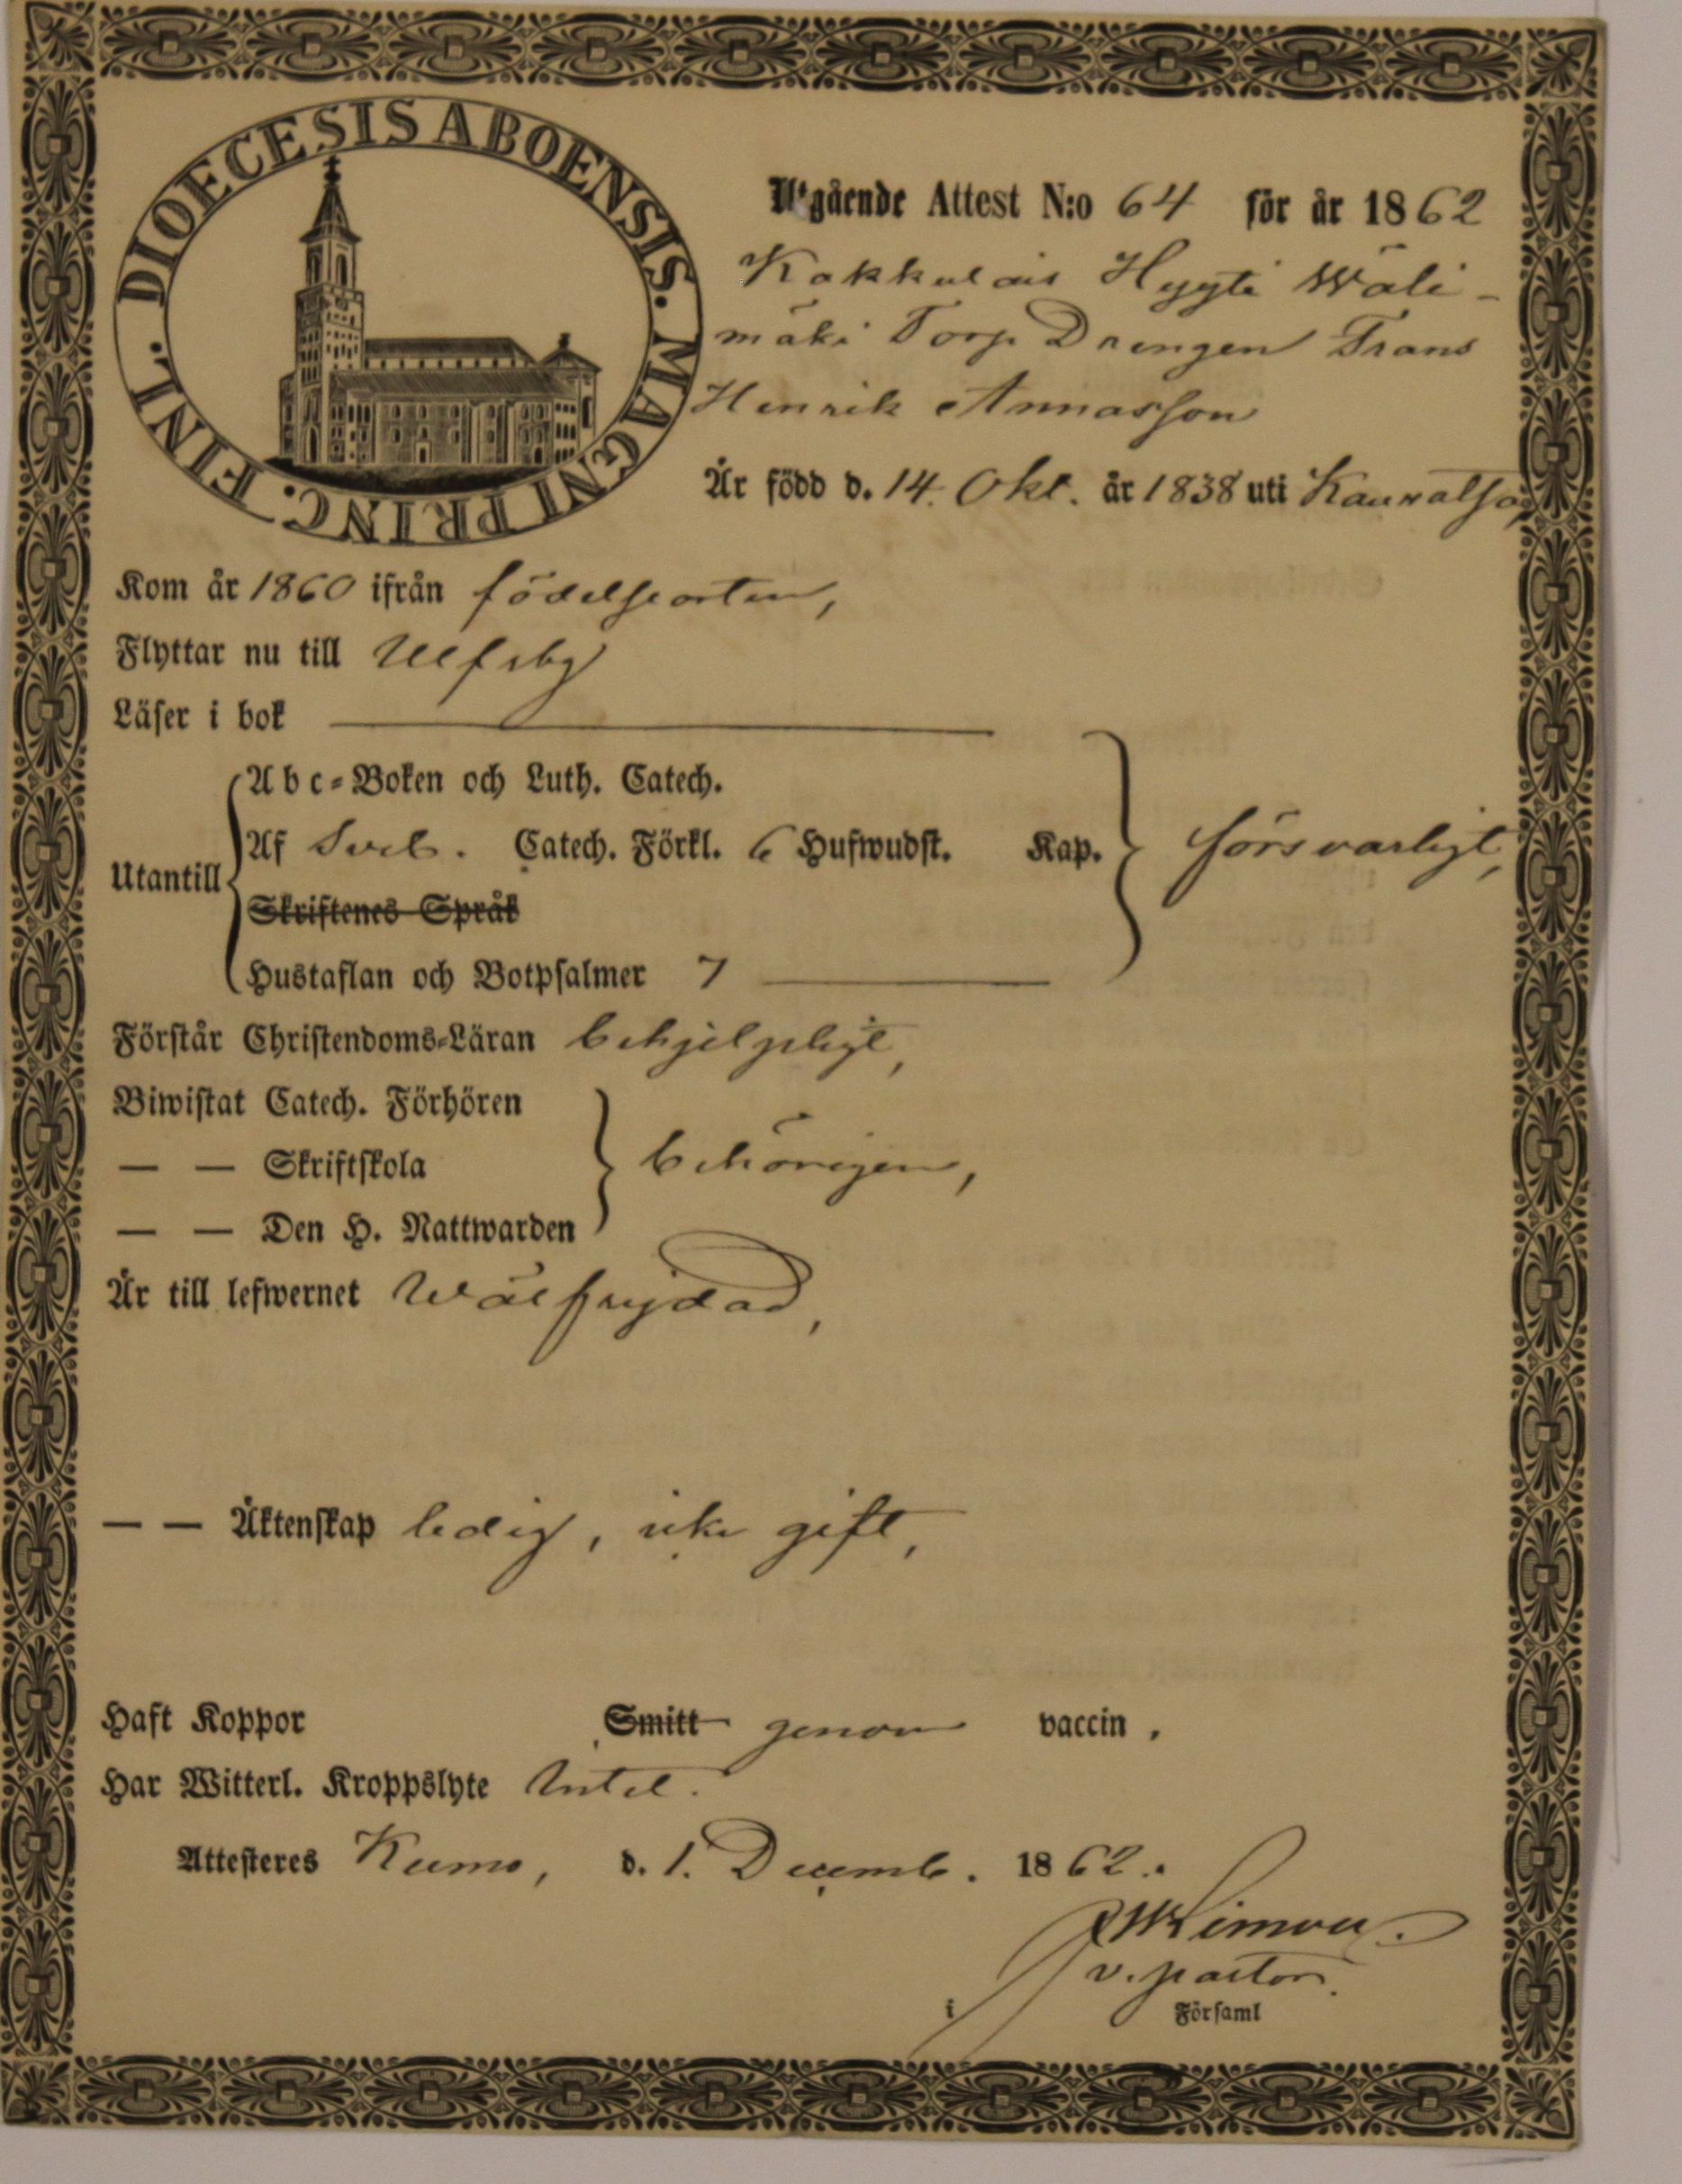 DIOECESIS ABOENSIS. MAGNI PRINC. FINL.
Utgående Attest N:o 64 för år 1862
Kakkulais Hyyti Wäli-
mäki Torp Drengen Frans
Henrik Annasson
Är född d. 14. Okt. år 1838 uti
Kom år 1860 ifrån födelseorten,
Flyttar nu till Ulfsby
Läser i bok
A b c-Boken och Luth. Catech.
Af Sveb. Catech. Förkl. 6 Hufwudst. Kap.
försvarligt,
Utantill
Skriftenes Språk
Hustaflan och Botpsalmer 7
Förstår Christendoms-Läran behjelpligt,
Biwistat Catech. Förhören
— — Skriftskola
behörigen,
— — Den H. Nattwarden
Är till lefwernet wälfrejdad,
— — Äktenskap ledig, icke gift,
Haft Koppor Smitt genom vaccin.
Har Witterl. Kroppslyte Intet.
Attesteres Kumo, d. 1. Decemb. 1862.
v. pastor.
i Församl